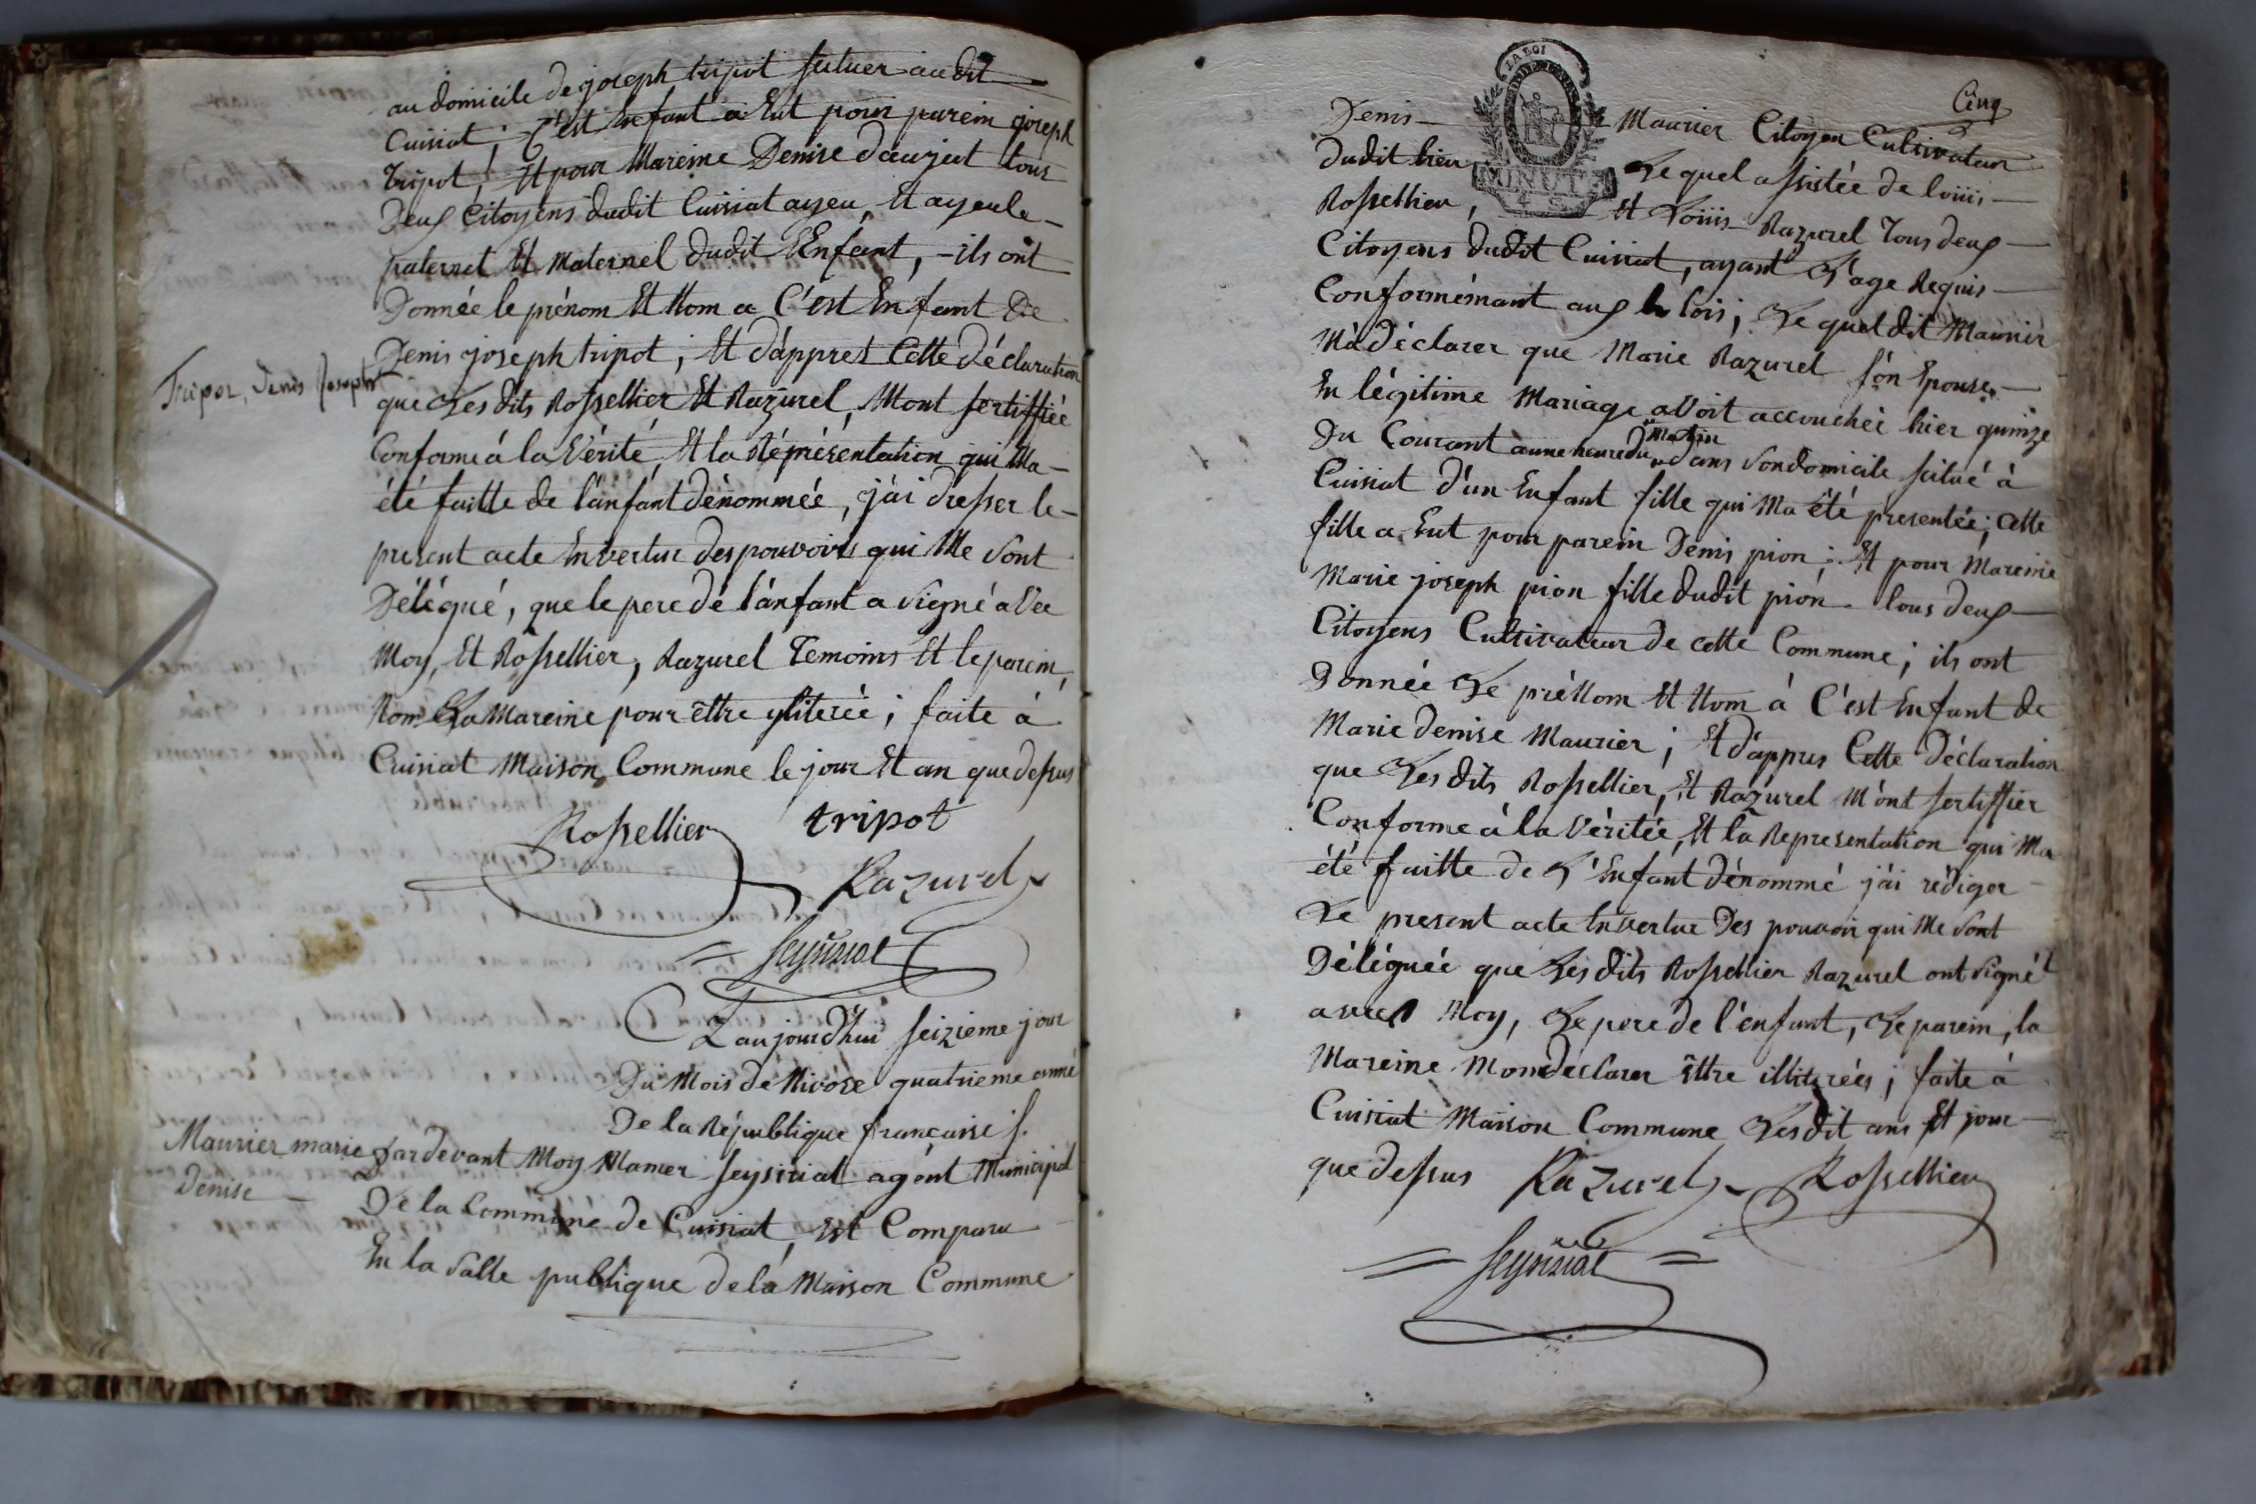 au domicile de joseph tripot scituer audit
Cuisiat ; C'est Enfant a Eut pour parein joseph
tripot, Et pour Mareine Denise dauvjat tous
Deux Citoyens dudit Cuisiat ayeu, Et ayeule
paternel Et Maternel dudit Enfant, - ils ont
Donnée le prénom Et Nom a C'est Enfant De
Denis joseph tripot ; Et d'appret Cette Déclaration
Tripot, Denis Joseph
que Les dits Rossellier Et Razurel, M'ont sertiffiée
Conforme à la Vérité, Et la Répréséntation qui Ma
été faitte de l'anfant dénommée, j'ai dresser le
present acte Envertue des pouvoirs qui Me Sont
Délégué, que le pere de l'anfant a Signé aVec
Moy, Et Rossellier, Razurel Temoins Et le parein,
Non La Mareine pour être yliterée ; faite à
Cuisiat Maison Commune le jour Et an que dessus
Rossellier tripot
Razurel
Seysiriat
Cejaujourd'hui seizieme jour
Du Mois de Nivose quatrieme anné
De la République françaisse j.
Maurier marie
Denise
Pardevant Moy Namer Seysiriat agent Municipal
De la Commune de Cuisiat, Est Comparu
En la Salle publique de la Maison Commune
Cinq
LA LOI
MINUTE
Denis Maurier Citoyen Cultivateur
dudit lieu Lequel assistée de Loüis
Rossellier, Et Loüis Razurel Tous deux
Citoyens dudit Cuisiat, ayant L'age Requis
Conformémant aux lois ; Le quel dit Maurier
M'a déclarer que Marie Razurel son Epouse
En légitime Mariage aVoit accouchéé hier quinze
Du Courant a une heure du Matin dans Son domicile scitué à
Cuisiat d'un Enfant fille qui Ma été présentée ; Cette
fille a Eut pour parein Denis pion ; Et pour Mareine
Marie joseph pion fille dudit pion tous deux
Citoyens Cultivateur de cette Commune ; ils ont
Donnée Le préNom Et Nom à C'est Enfant de
Marie denise Maurier ; Et d'appres Cette Déclaration
que Les dits Rossellier, Et Razurel M'ont sertiffier
Conforme à la Véritée, Et la Representation qui Ma
été faitte de L'Enfant dénommé j'ai rédiger
Le present acte Envertue Des pouvoir qui Me Sont
Déléguée que Les dits Rossellier Razurel ont Signé
avec Moy, Le pere de l'enfant, Le parein, la
Mareine Mon déclarer être illiterées ; faite à
Cuisiat Maison Commune Lesdit ans Et jour
que dessus Razurel Rossellier
Seysiriat